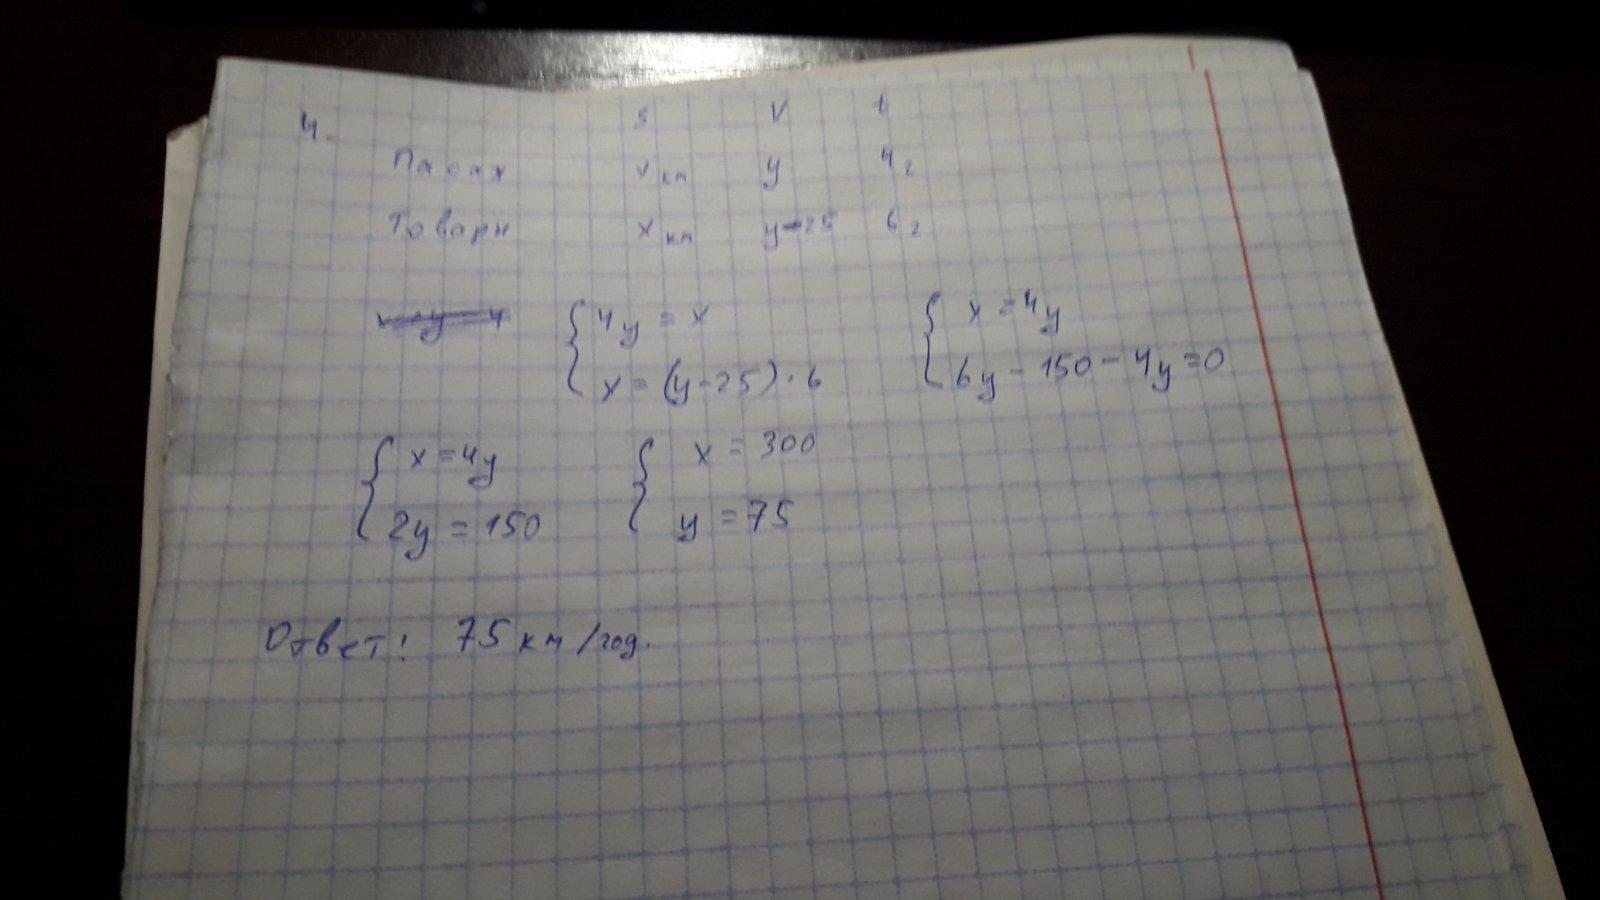 4.
S V t
Пасаж x км y 4 г
Товарн x км y-25 6 г
{ 4y = x { x = 4y
x = (y-25)·6 6y - 150 - 4y = 0
{ x = 4y { x = 300
2y = 150 y = 75
Ответ: 75 км/год.